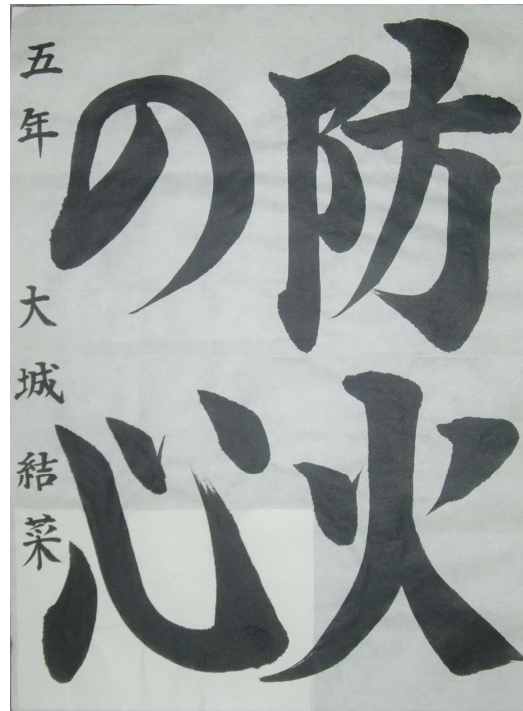 防火
の心
五年 大城結菜